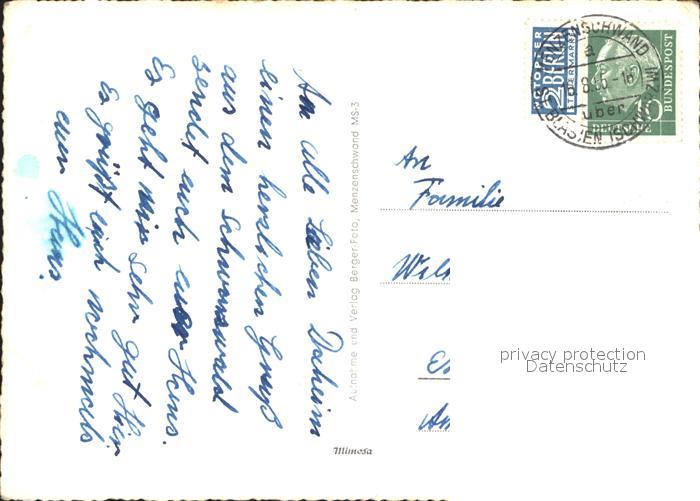 An alle Lieben Daheim
einen herzlichen Gruß
aus dem Schwarzwald
sendet euch euer Hans.
Es geht mir sehr gut hier
Es grüßt euch nochmals
euer Hans.
Aufnahme und Verlag Berger-Foto, Menzenschwand MS-3
Mimosa
NOTOPFER
2 BERLIN
STEUERMARKE
MENZENSCHWAND
a
über
ST. BLASIEN
10
DEUTSCHE
BUNDESPOST
An
Familie
privacy protection
Datenschutz